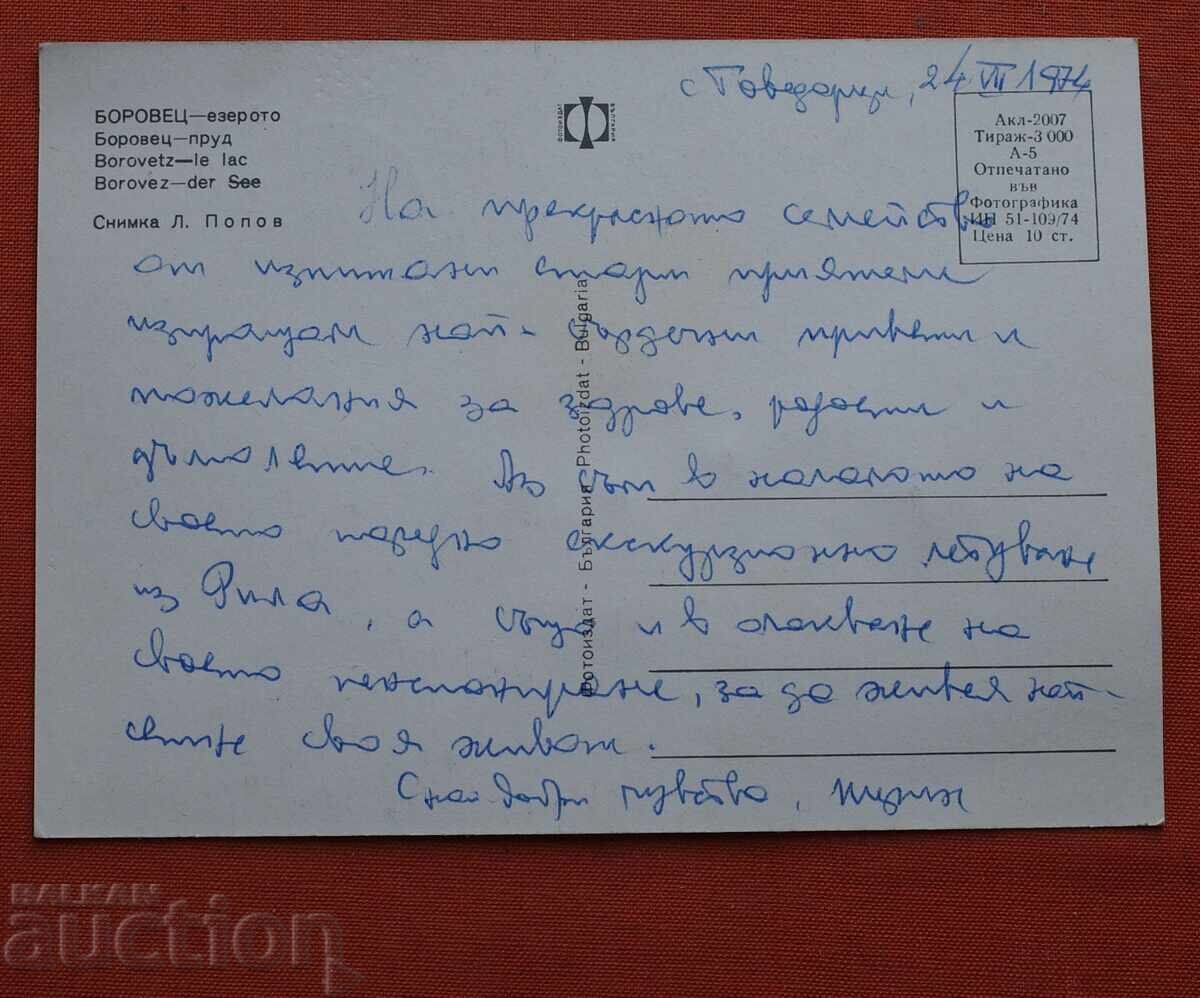 с. Говедарци, 24 VII 1974
БОРОВЕЦ—езерото
Боровец—пруд
Borovetz—le lac
Borovez—der See
Снимка Л. Попов
ФОТОИЗДАТ БЪЛГАРИЯ
Акл-2007
Тираж-3 000
А-5
Отпечатано
във
Фотографика
ИН 51-109/74
Цена 10 ст.
На прекрасното семейство
от изпитани стари приятели
изпращам най-сърдечни привети и
пожелания за здраве, радости и
дълголетие. Аз съм в началото на
своето поредно екскурзионно летуване
из Рила, а също и в очакване на
своето пенсиониране, за да живея най-
сетне своя живот.
С най добри чувства,
Фотоиздат - България Photoizdat - Bulgaria
BALKAN
auction